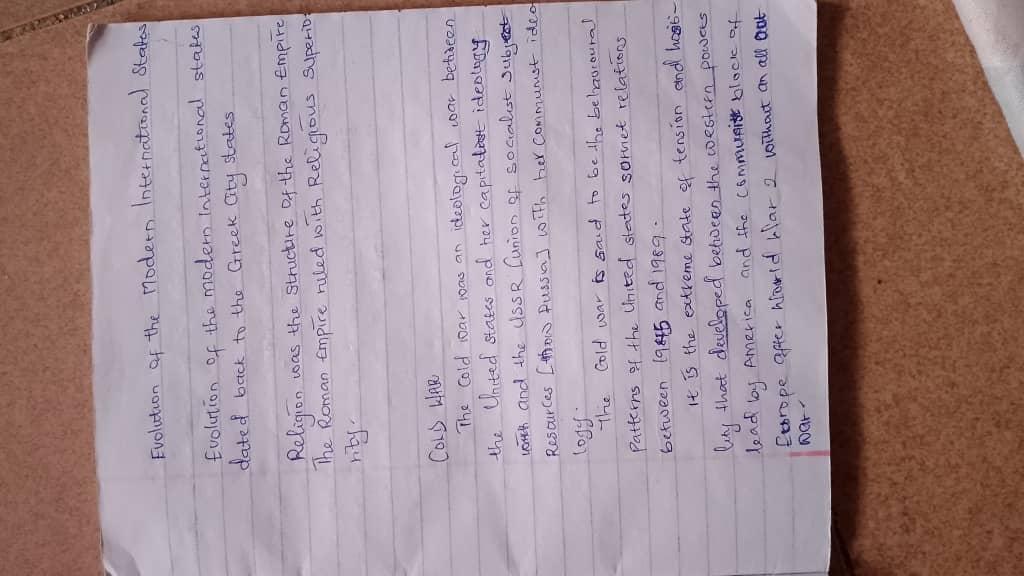 Evolution of the Modern International States
Evolution of the modern International states
dated back to the Greek City states
Religion was the structure of the Roman Empire
The Roman Empire ruled with Religious Superio-
rity.
COLD WAR
The Cold war was an ideological war between
the United states and her capitalist ideology
with and the USSR (union of socialist
Resources [now Russia] with her communist ideo
logy.
The cold war is said to be the behavioural
Patterns of the United states soviet relations
between 1945 and 1989.
It is the extreme state of tension and hosti-
lity that developed between the western powers
lead by America and the communist block of
Europe after World War 2 without an all out
war.